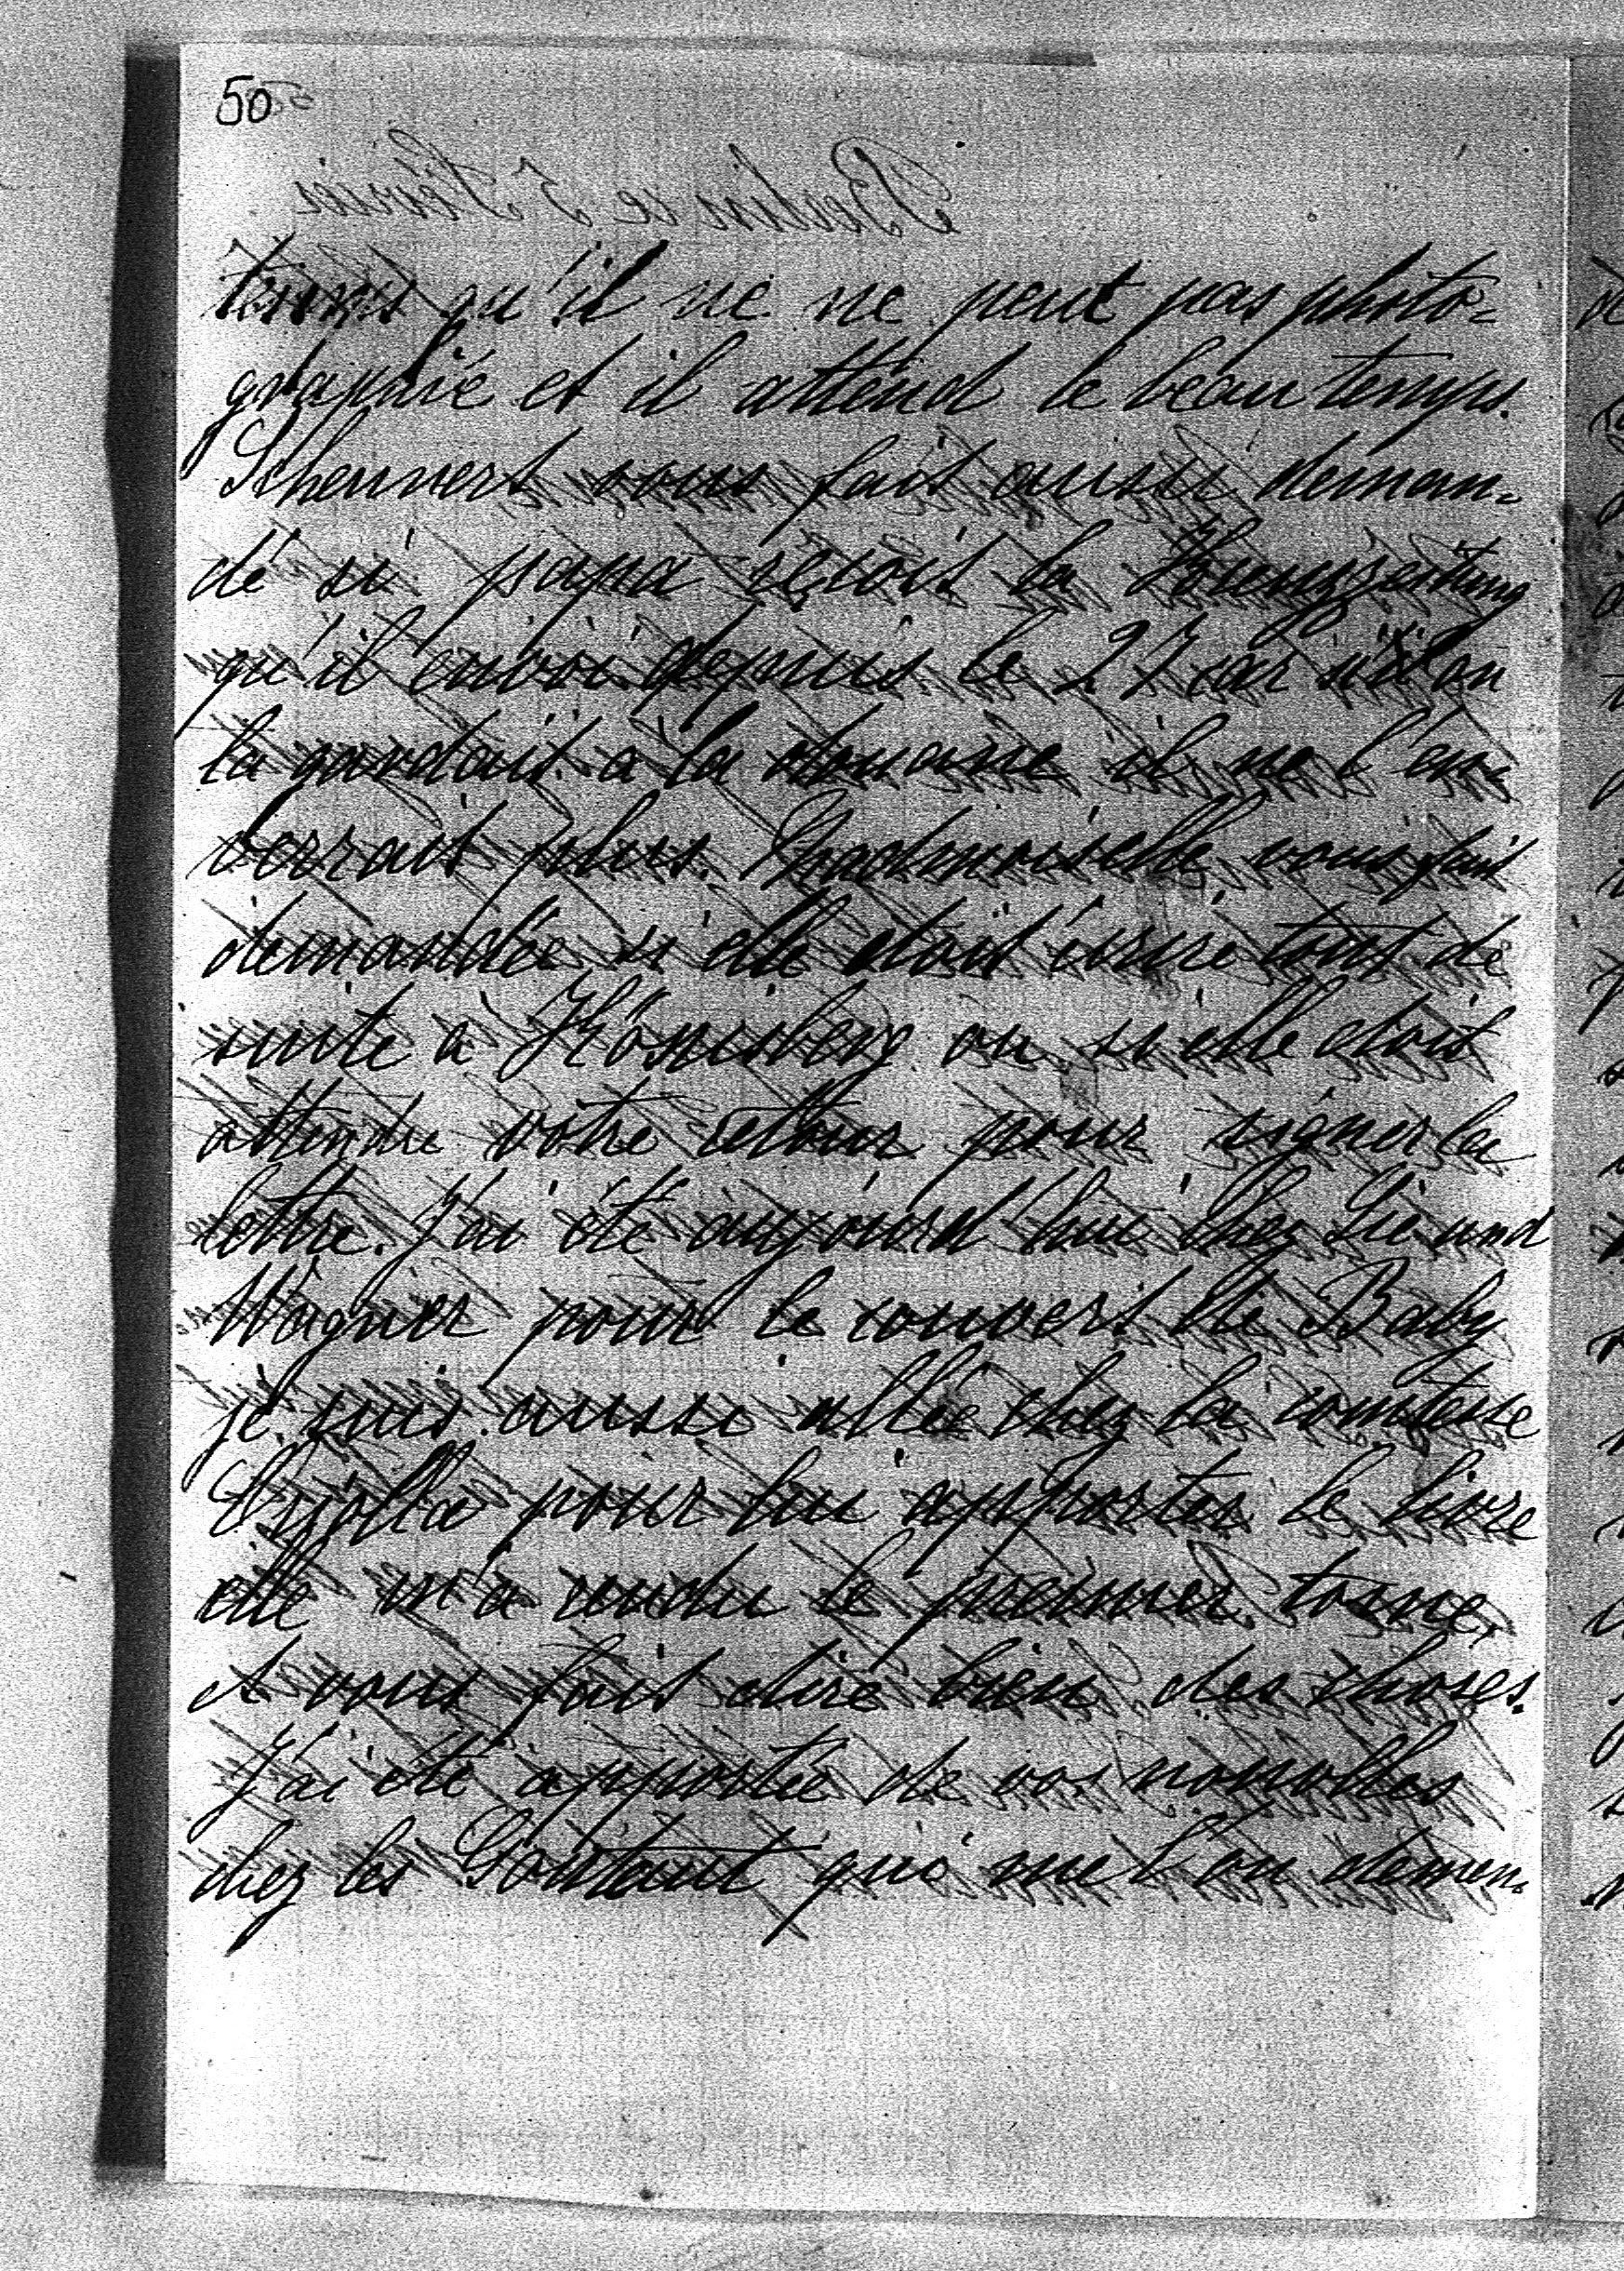 50
qu'il ne ne peut pas photo=
graphié et il attend le beau temps.
Scheunert vous fait aussi deman=
dé si papa reçois la Kreuzzeitung
qu'il envoi depuis le 27 car si on
la gardait à la douane il ne l'en=
verrait plus. Mademoiselle vous fait
demandée si elle doit écrire tout de
suite à Könisberg ou si elle doit
attendre votre retour pour signer la
lettre. J'ai été aujourd'hui chez und
Wagner pour le couvert de Baby
je suis aussi allée chez la comtesse
pour lui apporter le livre
elle m'a rendu le premier tome,
et vous fait dire bien des choses.
J'ai été apportée de vos nouvelles
chez les Gontaut qui me l'on deman=